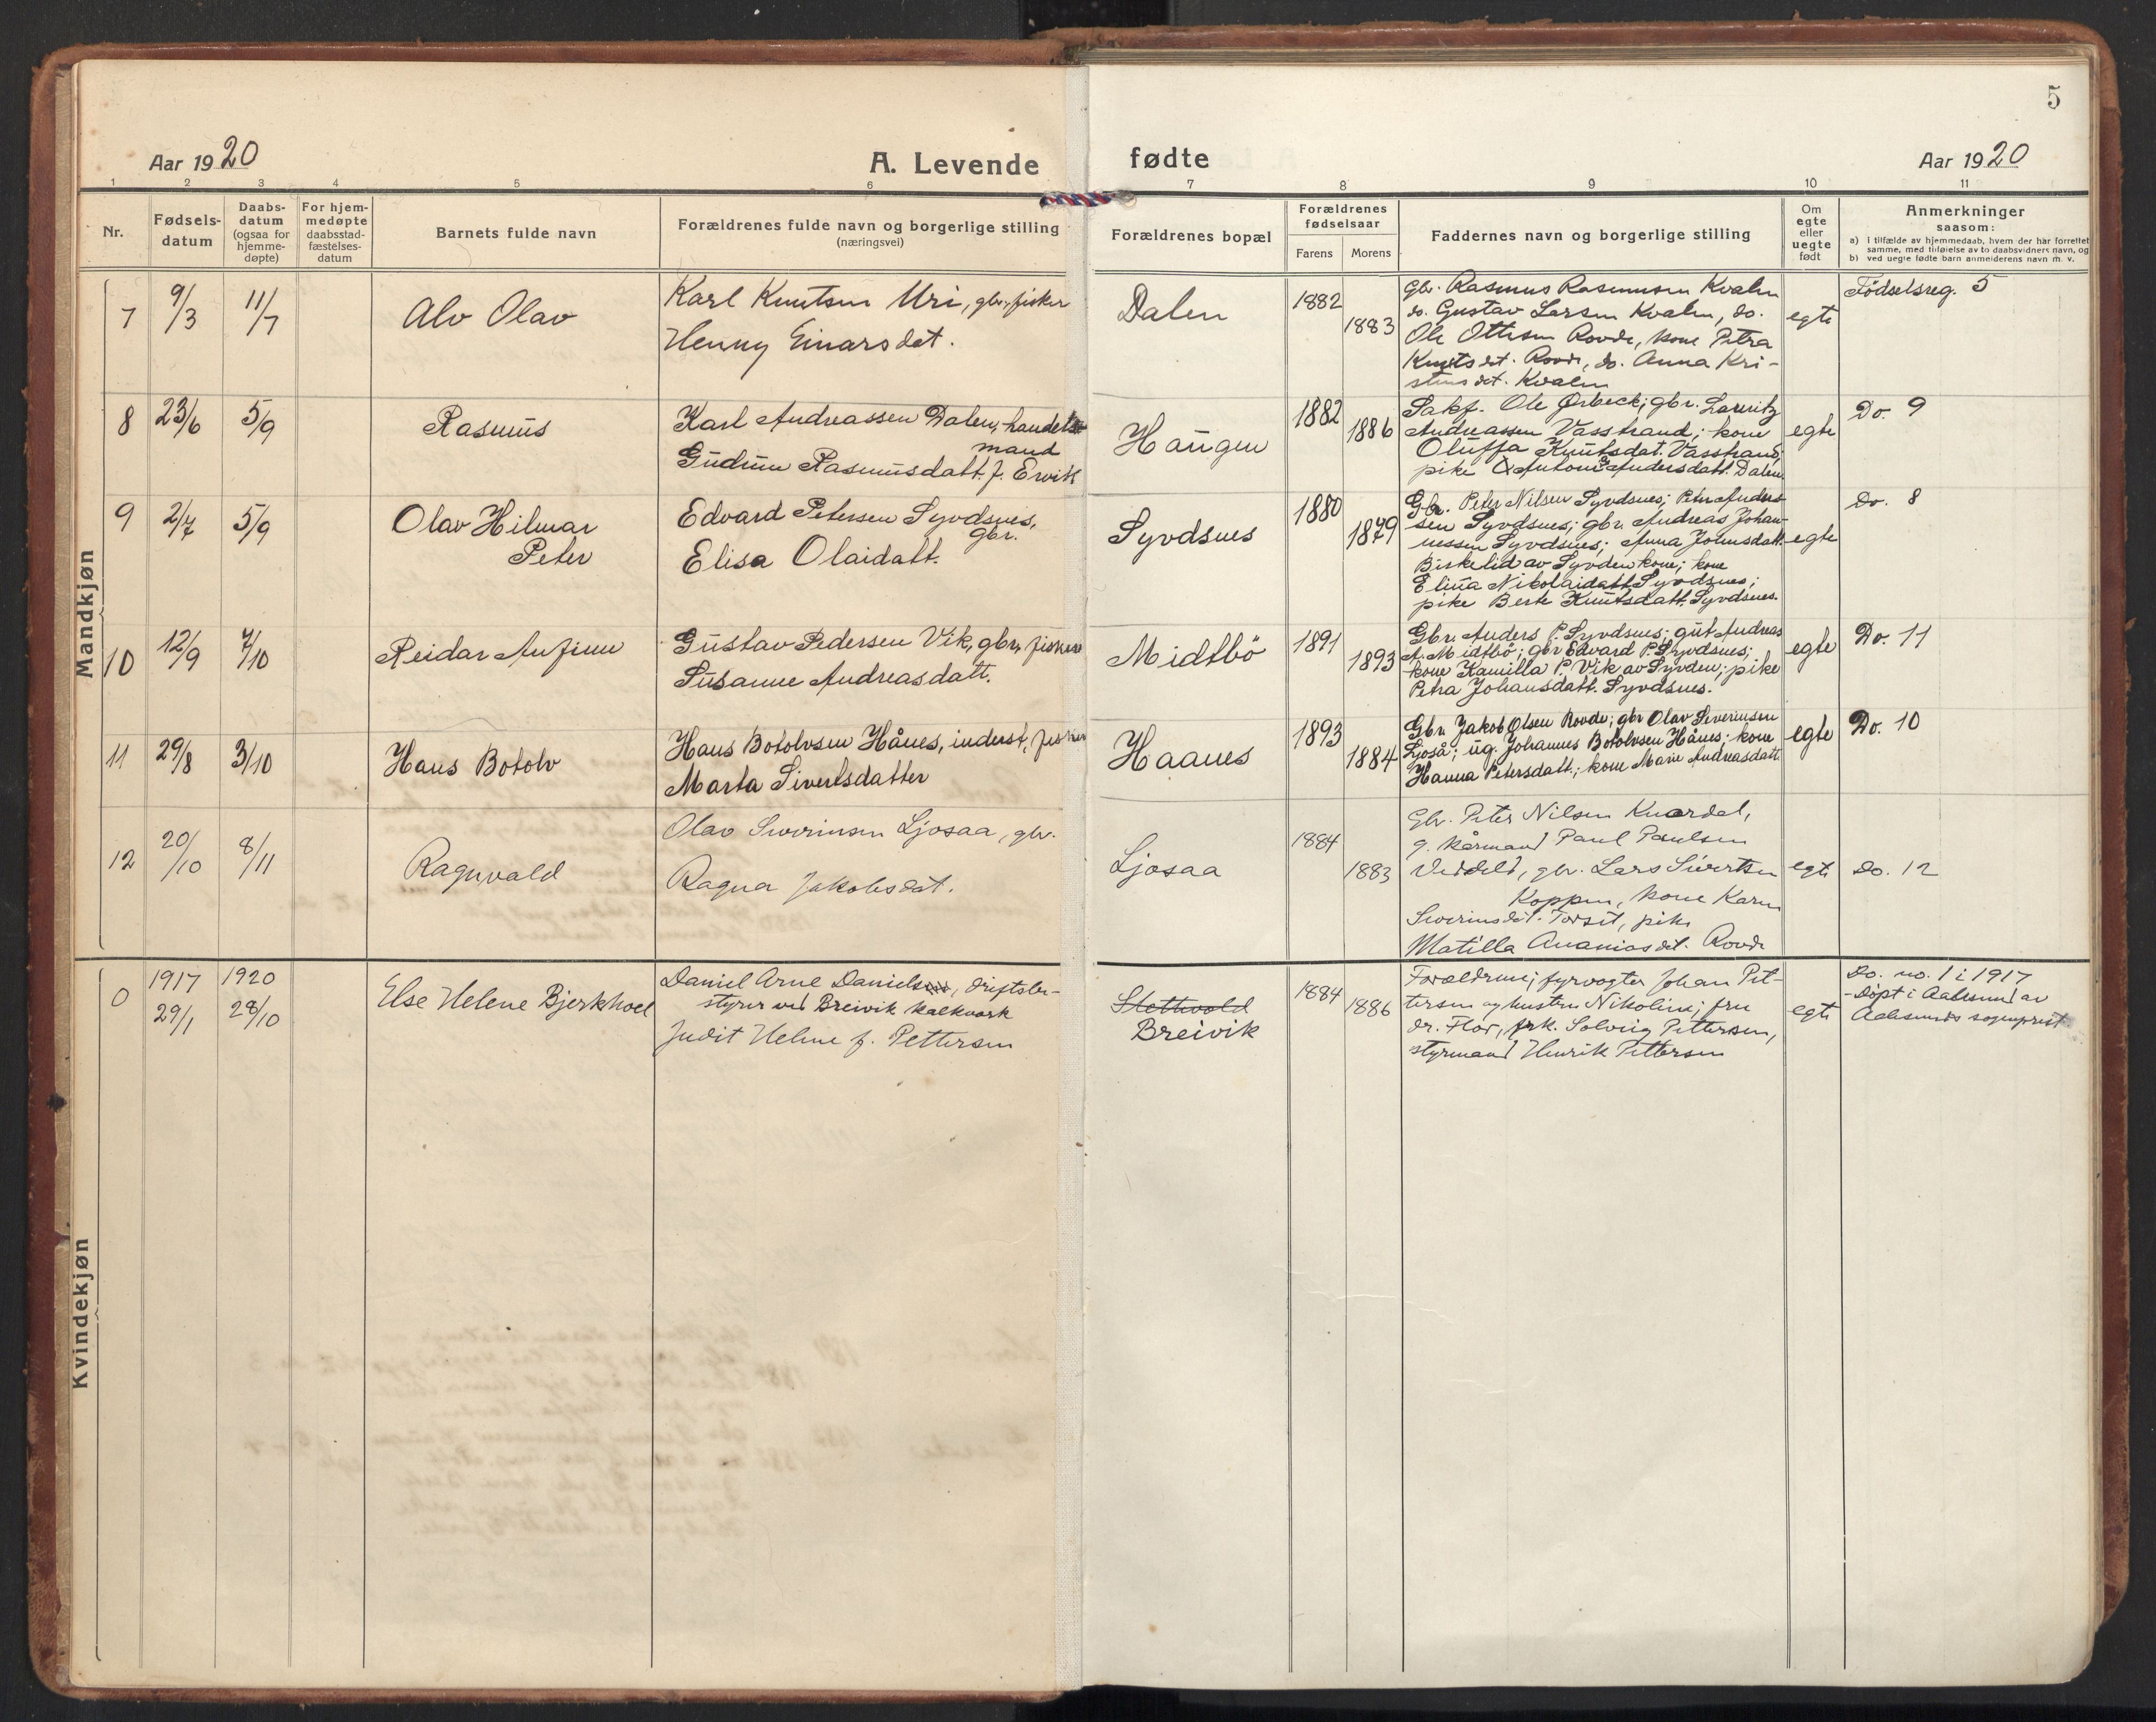 5
Aar 1920
A. Levende
fødte
Aar 1920
1 2 3 4 5 6 7 8 9 10 11
Nr.
Fødsels-
datum
Daabs-
datum
(ogsaa for
hjemme-
døpte)
For hjem-
medøpte
daabsstad-
fæstelses-
datum
Barnets fulde navn
Forældrenes fulde navn og borgerlige stilling
(næringsvei)
Forældrenes bopæl
Forældrenes
fødselsaar
Farens Morens
Faddernes navn og borgerlige stilling
Om
egte
eller
uegte
født
Anmerkninger
saasom:
a) i tilfælde av hjemmedaab, hvem der har forrettet
samme, med tilføielse av to daabsvidners navn, og
b) ved uegte fødte barn anmelderens navn m. v.
Mandkjøn
7 9/3 11/7 Alv Olav
Karl Knutsen Uri, gbr., fisker
Henny Einarsdat.
Dalen
1882
1883
Gbr. Rasmus Rasmussen Kvalen
do. Gustav Larsen Kvalen, do.
Ole Ottesen Rovde, kone Petra
Knutsdet. Rovde, do. Anna Kri-
stensdet. Kvalen
egte
Fødselsreg. 5
8 23/6 5/9 Rasmus
Karl Andreassen Dalen, handels-
mand
Gudrun Rasmusdatt. f. Ervik
Haugen
1882
1886
Sakf. Ole Ørbeck; gbr. Lauritz
Andreassen Vasstrand; kone
Oluffa Knutsdat. Vasstrand;
pike Andersdatt. Dalen
egte
Do. 9
9 2/7 5/9 Olav Hilmar
Peter
Edvard Petersen Syvdsnes,
gbr.
Elisa Olaidatt.
Syvdsnes
1880
1879
Gbr. Peter Nilsen Syvdsnes; Peter Anders-
sen Syvdsnes; gbr. Andreas Johan-
nessen Syvdsnes; Anna Jonnsdatt.
Birkelid av Syvden kone; kone
Elina Nikolaidatt. Syvdsnes;
pike Berte Knutsdatt. Syvdsnes.
egte
Do. 8
10 12/9 3/10 Reidar Anfinn
Gustav Pedersen Vik, gbr., fisker
Susanne Andreasdatt.
Midtbö
1891
1893
Gbr. Anders P. Syvdsnes; gut Andreas
A. Midtbö; gbr Edvard P. Syvdsnes;
kone Kamilla P. Vik av Syvden; pike
Petra Johansdatt. Syvdsnes.
egte
Do. 11
11 29/8 3/10 Hans Botolv
Hans Botolvsen Hånes, inderst, fisker
Marta Sivertsdatter
Haanes
1893
1884
Gbr. Jakob Olsen Rovde; gbr Olav Severinsen
Ljoså; ug. Johannes Botolvsen Hånes; kone
Hanna Petersdatt.; kone Marie Andreasdatt.
egte
Do. 10
12 20/10 8/11 Ragnvald
Olav Severinsen Ljosaa, gbr.
Ragna Jakobsdat.
Ljosaa
1884
1883
Gbr. Peter Nilsen Knardal,
g. kårmand Paul Paulsen
gbr. Lars Sivertsen
Koppen, kone Karen
Severinsdet. pike
Matilla Ananiasdet. Rovde
egte
Do. 12
Kvindekjøn
0
1917
29/1
1920
28/10
Else Helene Bjerkhoel
Daniel Arne Danielsen, driftsbe-
styrer ved Breivik kalkverk
Judit Helene f. Pettersen
Slettvold
Breivik
1884
1886
Forældrene; fyrvogter Johan Pet-
tersen og hustru Nikoline; fru
dr. Flor, frk. Solveig Pettersen,
styrmand Henrik Pettersen
egte
Do. no. 1 i 1917
- Døpt i Aalesund av
Aalesunds sogneprest